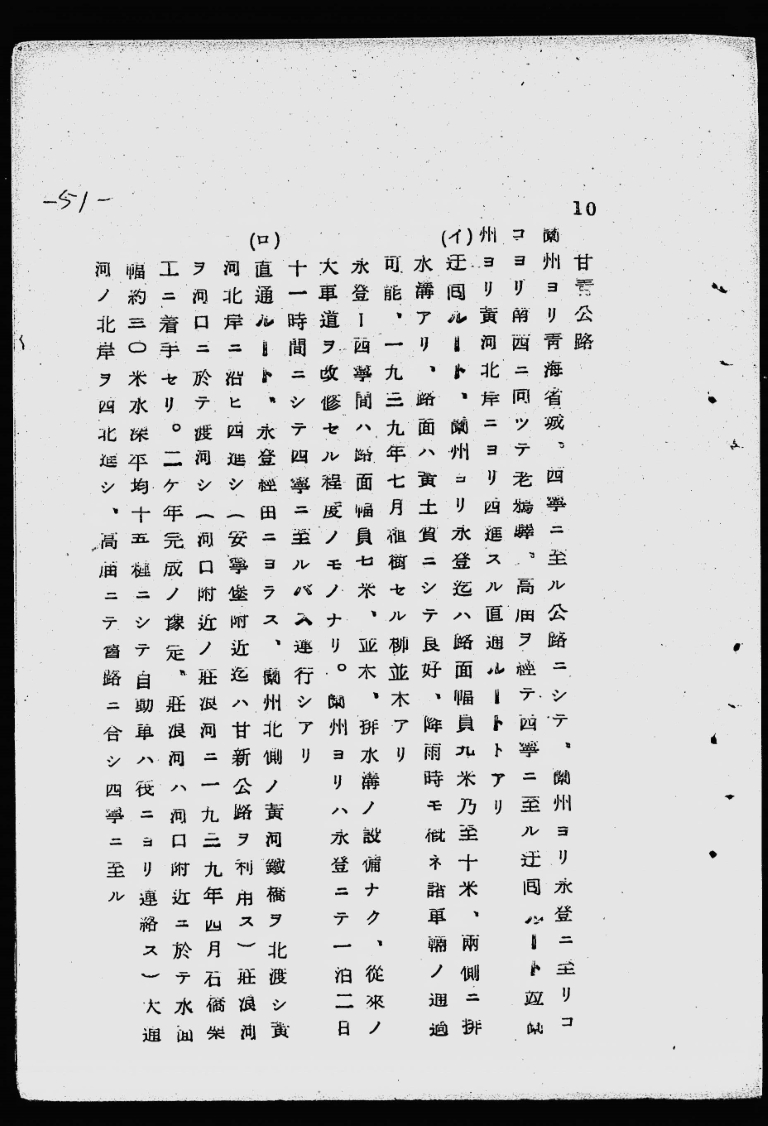 -51-
10
甘靑公路
蘭州ヨリ靑海省城、西寧ニ至ル公路ニシテ、蘭州ヨリ永登ニ至リコ
コヨリ南西ニ向ツテ老鴉驛、高庙ヲ經テ西寧ニ至ル迂囘ルート竝蘭
州ヨリ黃河北岸ニヨリ西進スル直通ルートトアリ
(イ)迂囘ルート、蘭州ヨリ永登迄ハ路面幅員九米乃至十米、兩側ニ排
水溝アリ、路面ハ黃土質ニシテ良好、降雨時モ槪ネ諸車輛ノ通過
可能、一九三九年七月植樹セル柳並木アリ
永登ー西寧間ハ路面幅員七米、並木、排水溝ノ設備ナク、從來ノ
大車道ヲ改修セル程度ノモノナリ。蘭州ヨリハ永登ニテ一泊二日
十一時間ニシテ西寧ニ至ルバス運行シアリ
(ロ)直通ルート、永登經由ニヨラス、蘭州北側ノ黃河鐵橋ヲ北渡シ黃
河北岸ニ沿ヒ西進シ(安寧堡附近迄ハ甘新公路ヲ利用ス)莊浪河
ヲ河口ニ於テ渡河シ(河口附近ノ莊浪河ニ一九三九年四月石橋架
工ニ着手セリ。二ケ年完成ノ豫定、莊浪河ハ河口附近ニ於テ水面
幅約三〇米水深平均十五糎ニシテ自動車ハ筏ニヨリ連絡ス)大通
河ノ北岸ヲ西北進シ、高庙ニテ舊路ニ合シ西寧ニ至ル